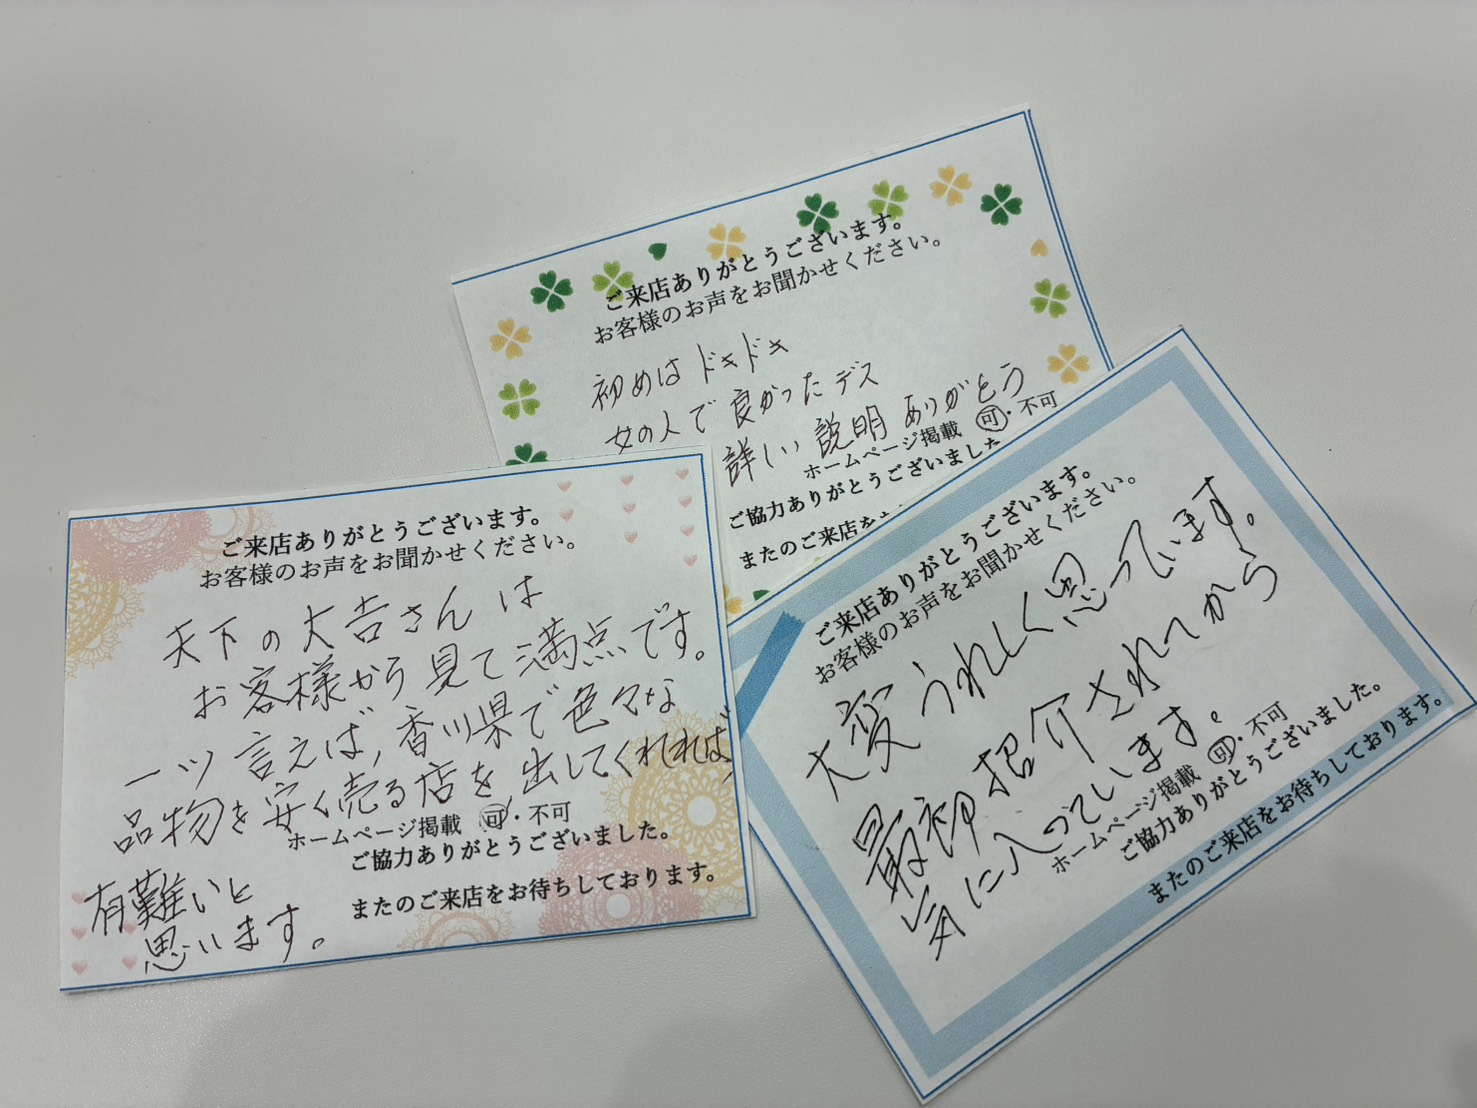 ご来店ありがとうございます。
お客様のお声をお聞かせください。
初めはドキドキ
女の人で良かったデス
詳しい説明ありがとう
ホームページ掲載 可・不可
ご協力ありがとうございました
またのご来店を
ご来店ありがとうございます。
お客様のお声をお聞かせください。
天下の大吉さんは
お客様から見て満点です。
一ツ言えば,香川県で色々な
品物を安く売る店を出してくれれば
ホームページ掲載 可・不可
ご協力ありがとうございました。
有難いと
思います。
またのご来店をお待ちしております。
ご来店ありがとうございます。
お客様のお声をお聞かせください。
大変うれしく思っています。
最初招介されてから
気に入っています。
ホームページ掲載 可・不可
ご協力ありがとうございました。
またのご来店をお待ちしております。